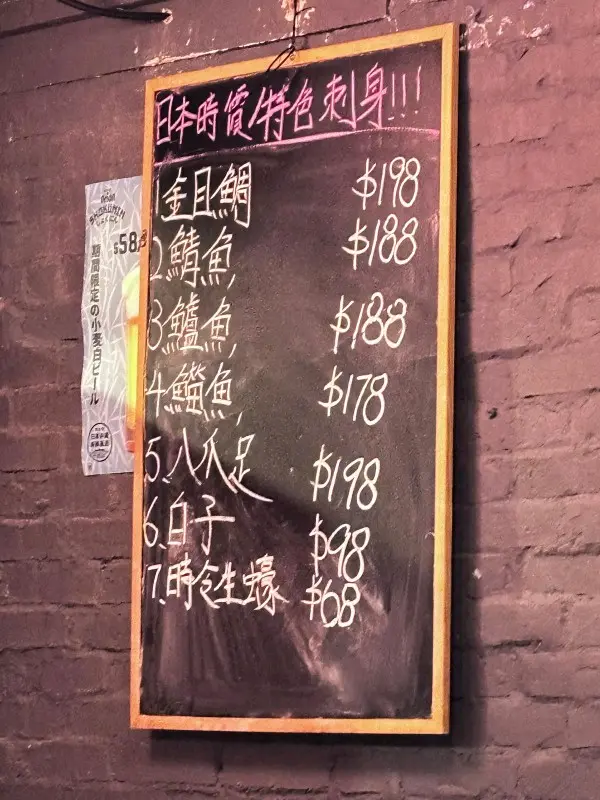 日本時價/特色刺身!!!
1 金目鯛 $198
2 鯖魚, $188
3 鱸魚, $188
4 魚, $178
5.八爪足 $198
6.白子 $98
7.時令生蠔 $68
SHOKUNIN
$58
期間限定の小麦白ビール